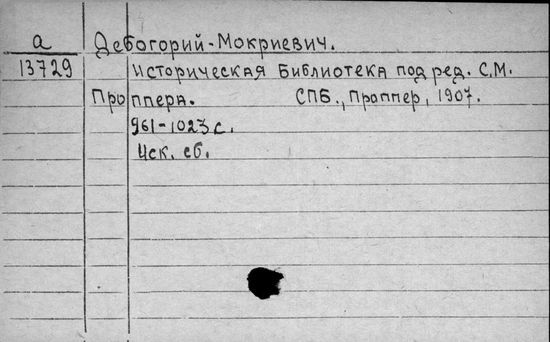 а Дебогорий-Мокриевич.
13729 Историческая Библиотека под ред. С.М.
Проппера. СПБ., Проппер, 1907.
961-1023 с.
Иск. сб.